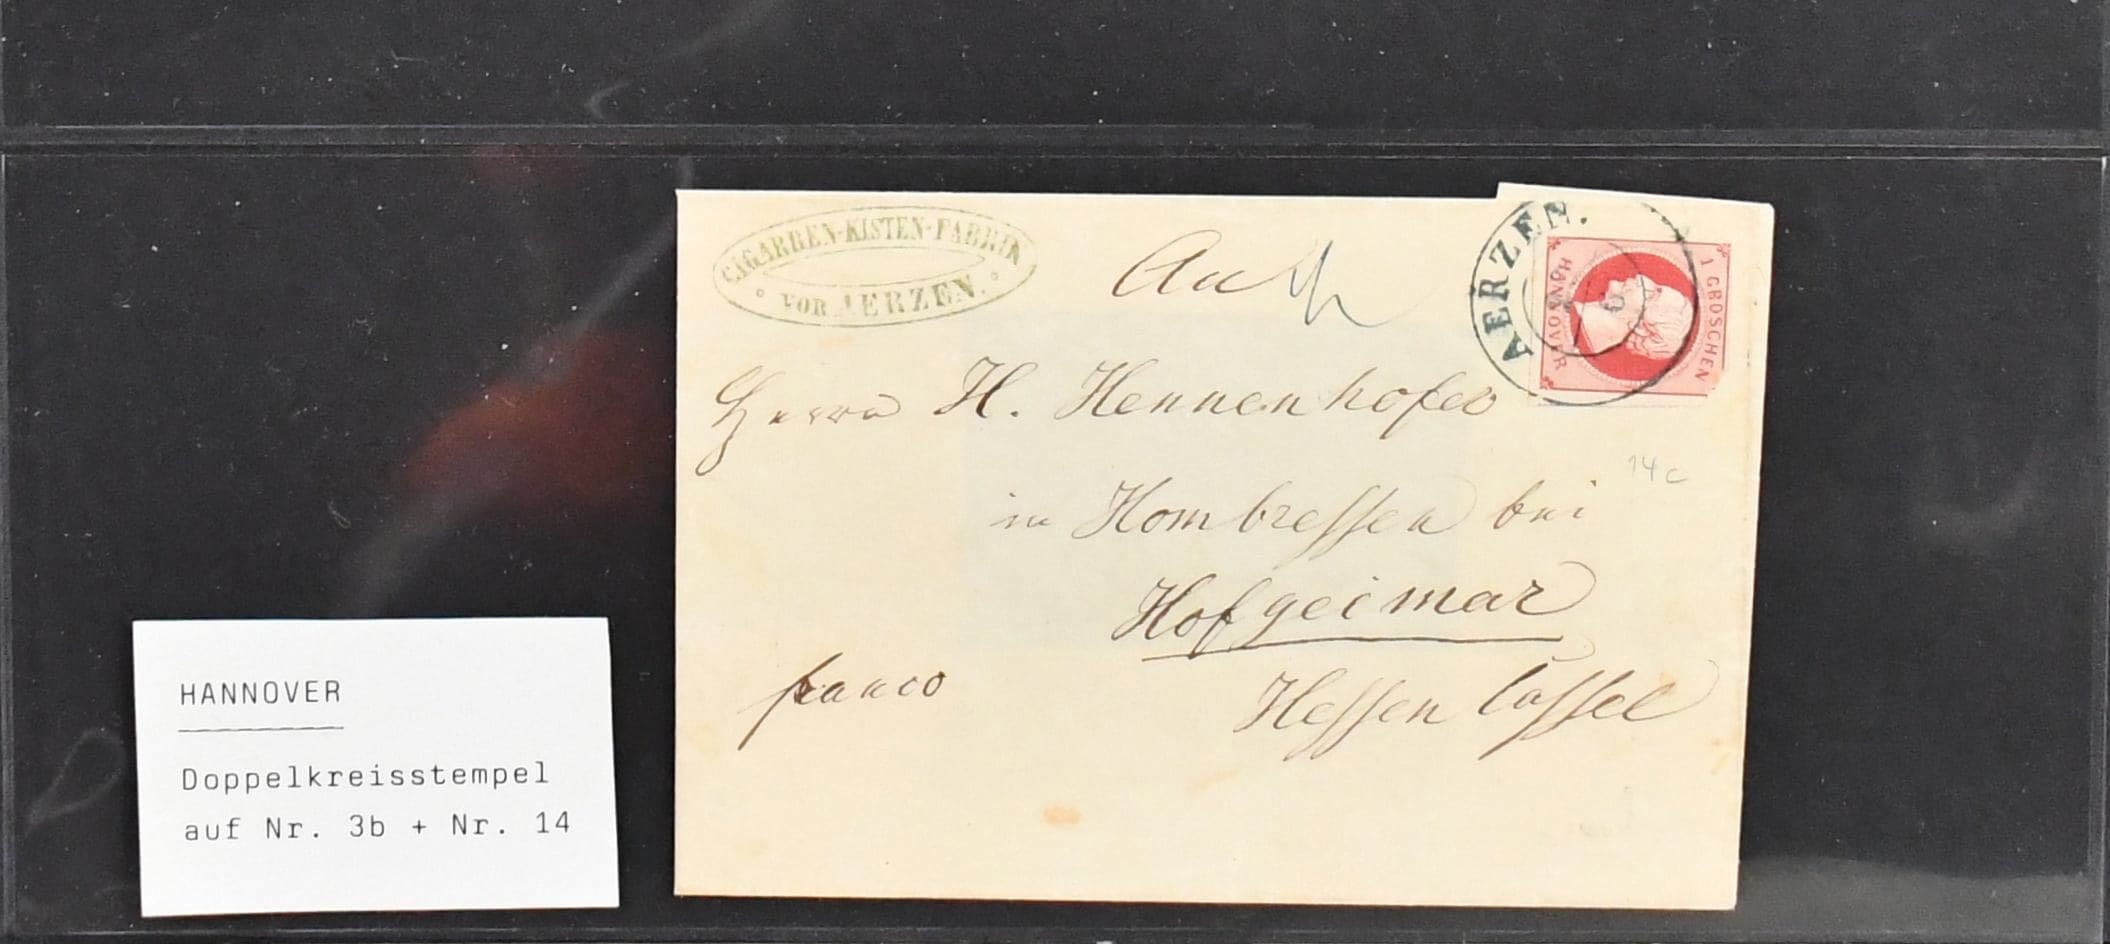 CIGARREN-KISTEN-FABRIK
VOR AERZEN.
AERZEN.
HANNOVER
1 GROSCHEN
Herrn H. Hennenhofer
14c
in Hombressen bei
Hofgeimar
franco
Hessen Cassel
HANNOVER
Doppelkreisstempel
auf Nr. 3b + Nr. 14